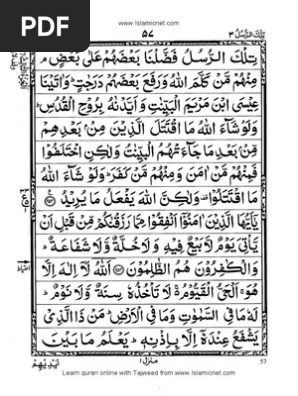 PDF
www.Islamicnet.com
تِلْكَ الرُّسُلُ ٣
٥٧
تِلْكَ الرُّسُلُ فَضَّلْنَا بَعْضَهُمْ عَلٰى بَعْضٍ ۘ
مِنْهُمْ مَّنْ كَلَّمَ اللّٰهُ وَرَفَعَ بَعْضَهُمْ دَرَجٰتٍ ؕ وَاٰتَيْنَا
عِيْسَى ابْنَ مَرْيَمَ الْبَيِّنٰتِ وَاَيَّدْنٰهُ بِرُوْحِ الْقُدُسِ ؕ
وَلَوْ شَآءَ اللّٰهُ مَا اقْتَتَلَ الَّذِيْنَ مِنْۢ بَعْدِهِمْ
مِّنْۢ بَعْدِ مَا جَآءَتْهُمُ الْبَيِّنٰتُ وَلٰكِنِ اخْتَلَفُوْا
فَمِنْهُمْ مَّنْ اٰمَنَ وَمِنْهُمْ مَّنْ كَفَرَ ؕ وَلَوْ شَآءَ اللّٰهُ
مَا اقْتَتَلُوْا ۫ وَلٰكِنَّ اللّٰهَ يَفْعَلُ مَا يُرِيْدُ
يٰۤاَيُّهَا الَّذِيْنَ اٰمَنُوْۤا اَنْفِقُوْا مِمَّا رَزَقْنٰكُمْ مِّنْ قَبْلِ اَنْ
يَّاْتِيَ يَوْمٌ لَّا بَيْعٌ فِيْهِ وَلَا خُلَّةٌ وَّلَا شَفَاعَةٌ ؕ
وَالْكٰفِرُوْنَ هُمُ الظّٰلِمُوْنَ اَللّٰهُ لَاۤ اِلٰهَ اِلَّا
هُوَ ۚ اَلْحَيُّ الْقَيُّوْمُ ۚ لَا تَاْخُذُهٗ سِنَةٌ وَّلَا نَوْمٌ ؕ
لَهٗ مَا فِي السَّمٰوٰتِ وَمَا فِي الْاَرْضِ ؕ مَنْ ذَا الَّذِيْ
يَشْفَعُ عِنْدَهٗۤ اِلَّا بِاِذْنِهٖ ؕ يَعْلَمُ مَا بَيْنَ
اَيْدِيْهِمْ
منزل ١
57
Learn quran online with Tajweed from www.Islamicnet.com